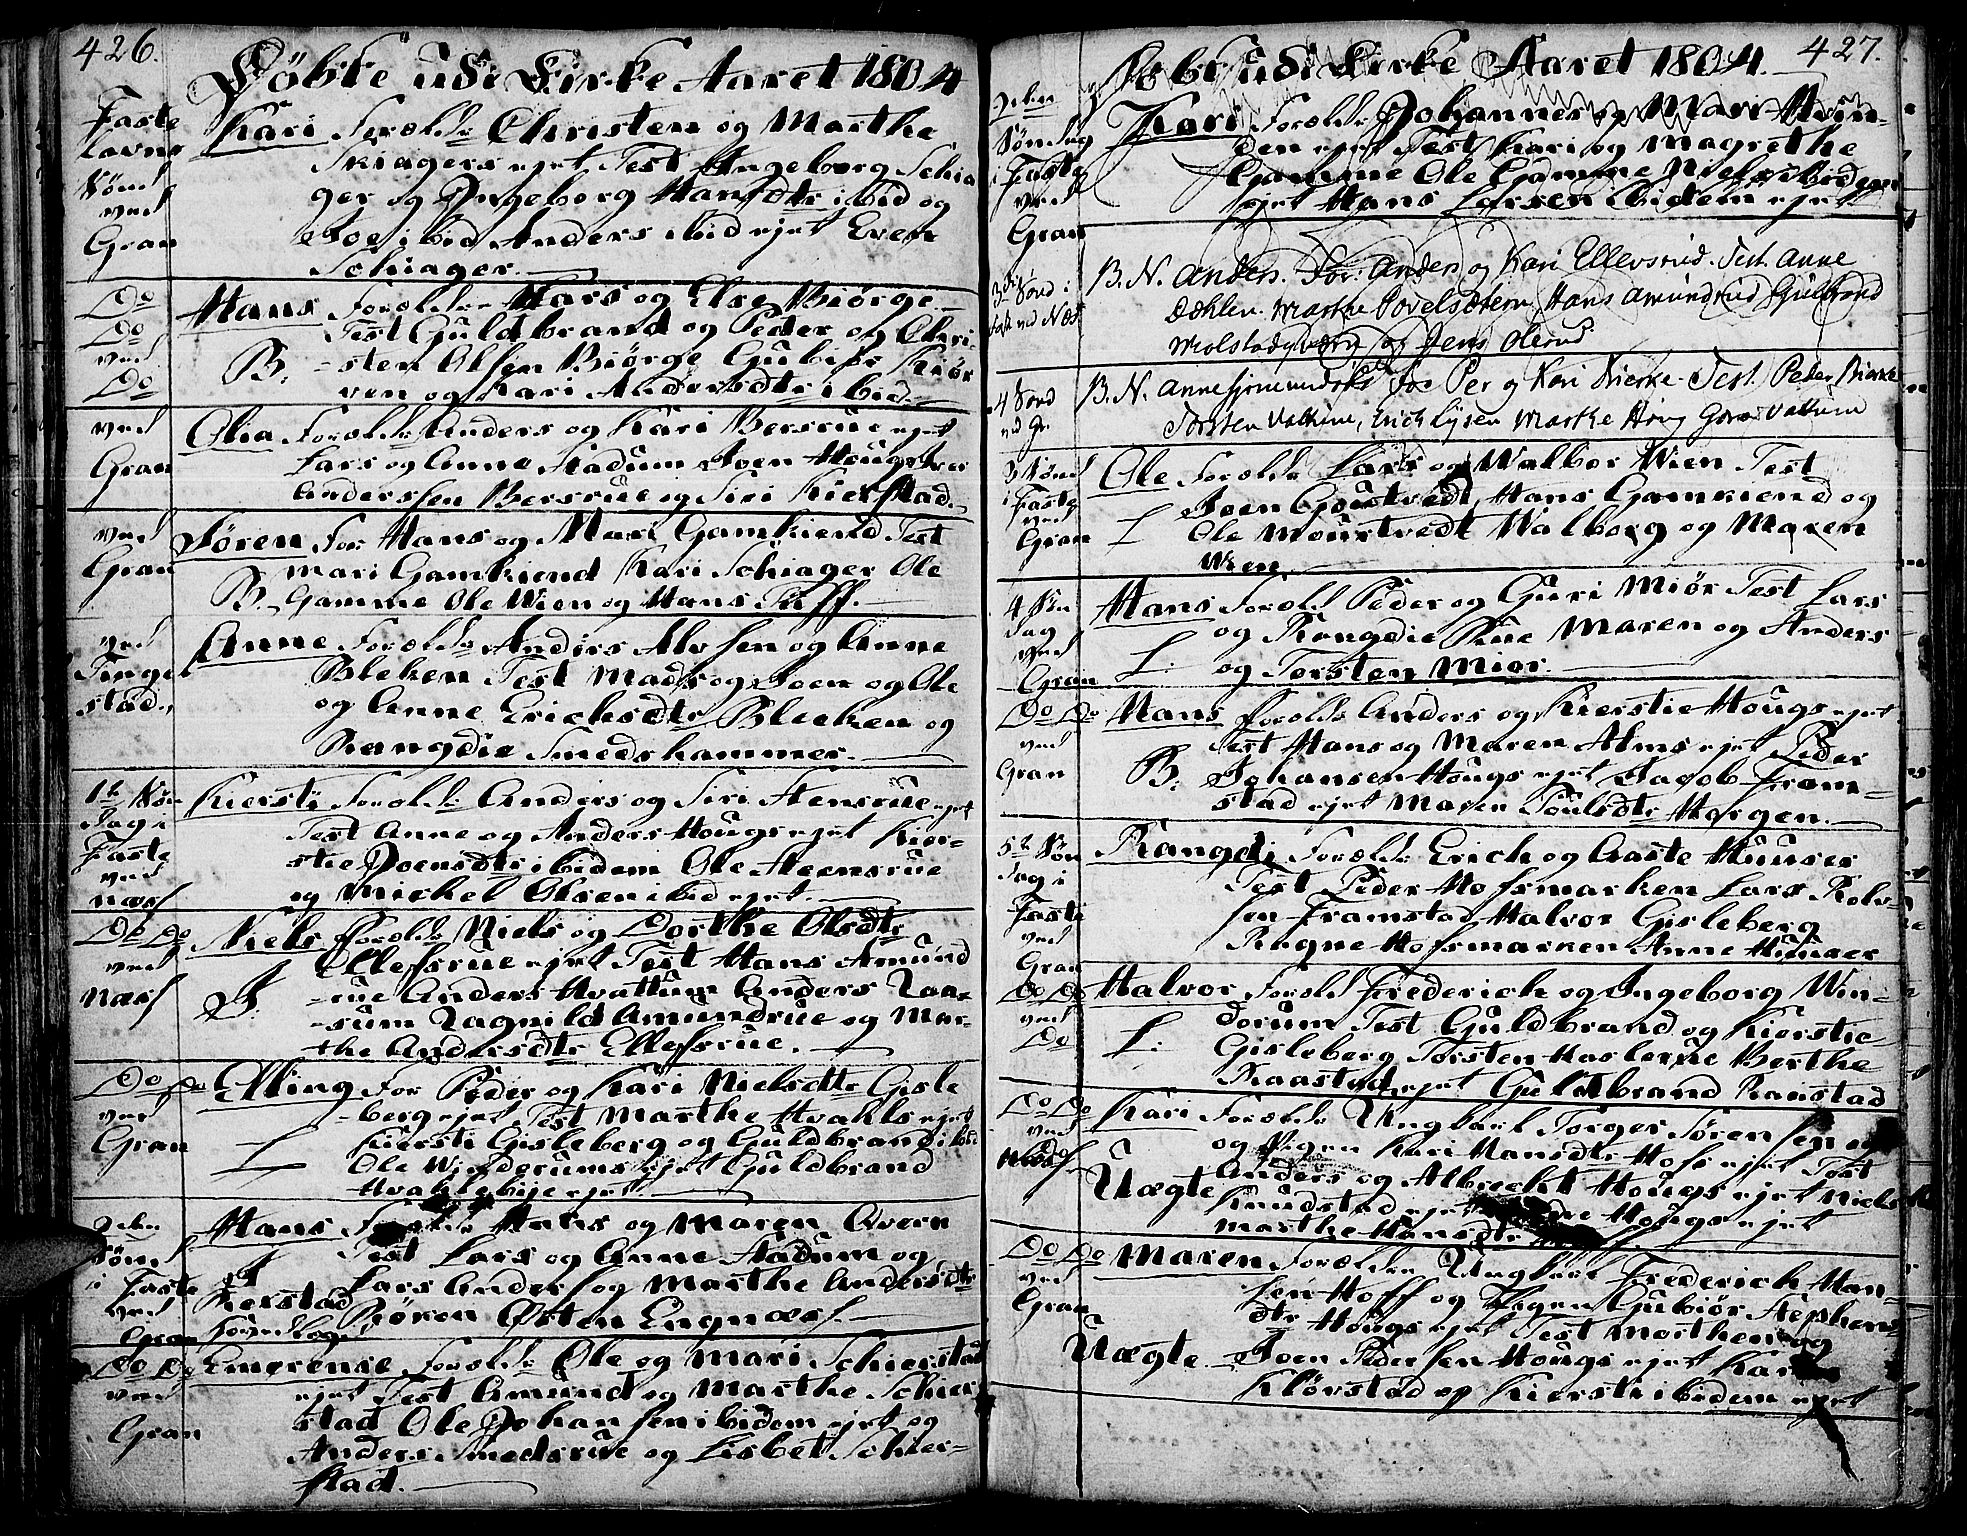 426.
Döbte udi Kirke Aaret 1804
Faste
lavns
Sönd
ved
Gran
Kari Forældr Christen og Marthe
Skiagers ejet Test Ingeborg Schia
ger og Ingeborg Hansdtr ibid og
Joe ibid Anders ibid ejet Even
Schiager.
Do
Do
ved
Do
Hans Forældre Hars og Else Biörge
Test Guldbrand og Peder og Chri-
B. sten Olsen Biörge Gubiör Kiör
ven og Kari Andersdtr ibid.
ved
Gran
Olia Forældr Anders og Kari Bersrue ejet
Lars og Anne Stadum Joen Hougs Iver
Anderssen Bersrue og Siri Kierstad.
ved
Gran
Sören For Hans og Mari Gamkiend Test
Mari Gamkiend Kari Schiager Ole
B. Gamme Ole Wien og Hans Tuff.
ved
Tinge
stad.
Anne Forældr Anders Alvsen og Anne
Bleken Test Mads og Joen og Ole
og Anne Erichsdtr Bleeken og
Rangdie Smedshammer.
1te Sön
dag i
Faste
ved
Næss
Kiersti Forældr Anders og Siri Stensrue ejet
Test Anne og Anders Hougs ejet Kier-
stie Joensdtr ibidem Ole Steensrue
og Michel Olsen ibid ejet.
Do Do
ved
Næss
Niels Forældr Niels og Dorthe Olsdtr
Ellefsrue ejet Test Hans Amund
rue Anders Hvattum Anders Raa-
sum Ragnild Amundrue og Mar-
the Andersdtr Ellefsrue.
Do Do
ved
Gran
Elling For Peder og Kari Nielsdtr Gisle
berg ejet Test Marthe Hvahls ejet
L Kiersti Gisleberg og Guldbrand ibid
Ole Winderums ejet Guldbrand
Hvahlebye ejet
2den
Sönd
i Faste
ved
Gran
Hans Forældr Hans og Maren Qvern
Test Lars og Anne Stadum og
Lars Anders og Marthe Andersdtr
Kierstad Sören Östen Engnæss.
Do Do
ved
Gran
Emerense Forældr Ole og Mari Schierstad
ejet Test Amund og Marthe Schier
stad Ole Johansen ibidem ejet og
Anders Smedsrue og Lisbet Schier-
stad.
427.
Döbt udi Kirke Aaret 1804.
2den
Söndag
i Faste
ved
Gran
Kari Forældr Johannes og Mari Hvin-
den ejet Test Kari og Magrethe
Gamme Ole Gamme Niels ibidem
ejet Hans Larsen ibidem ejet
3die Sönd i
Fast ved Næs
B. N. Anders. For: Anders og Kari Ellevsrud. Test. Anne
Dæhlen. Marthe Povelsdtern, Hans Amundrud Gulbrand
Molstadqværn og Jens Olerud
4 Sønd
ved Gr.
B. N. Anne For Per og Kari Bierke Test. Peder Bierke
Torsten Vattum, Erich Lysen Marthe Horg Goro Vattum
3 Sönd
i Faste
ved
Gran
Ole Forældr Lars og Walbor Wien Test
Joen Goustvedt Hans Gamkiend og
L Ole Moustvedt Walborg og Maren
Wien.
4 Sön
dag
ved
Gran
Hans Foræld Peder og Guri Miör Test Lars
og Rongdie Rue Maren og Anders
L: og Torsten Miör.
Do Do
ved
Gran
Hans Forældr Anders og Kierstie Hougs ejet
Test Hans og Maren Alms ejet Peder
B. Johansen Hougs ejet Jacob Fram-
stad ejet Maren Poulsdtr Horgen.
5te Sön
dag i
Faste
ved
Gran
Rangdi Forældr Erich og Aaste Huuser
Test Peder Hofsmarken Lars Rolv-
sen Framstad Halvor Gisleberg
Ragne Hofsmarken Anne Huuser
Do Do
ved
Do
Halvor Foræld Frederich og Ingeborg Win-
dorum Test Guldbrand og Kierstie
L: Gisleberg Torsten Haslerue Berthe
Raastad ejet Guldbrand Ranstad
Do Do
ved
Kari Forældr Ungkarl Torger Sörensen og
og Pigen Kari Hansdtr Hofs ejet Test
Uægte Anders og Albrecht Hougs ejet Niels
Knudstad ejet Hougs ejet
Marthe Hansdtr
Do Do
ved
Gran
Maren Forældre Ungkarl Frederich Han-
sen Hoff og Pigen Gubiör Stephens-
dtr Hougs ejet Test Marthe og
Uægte Joen Pedersen Hougs ejet Kari
Klörstad og Kiersti ibidem ejet